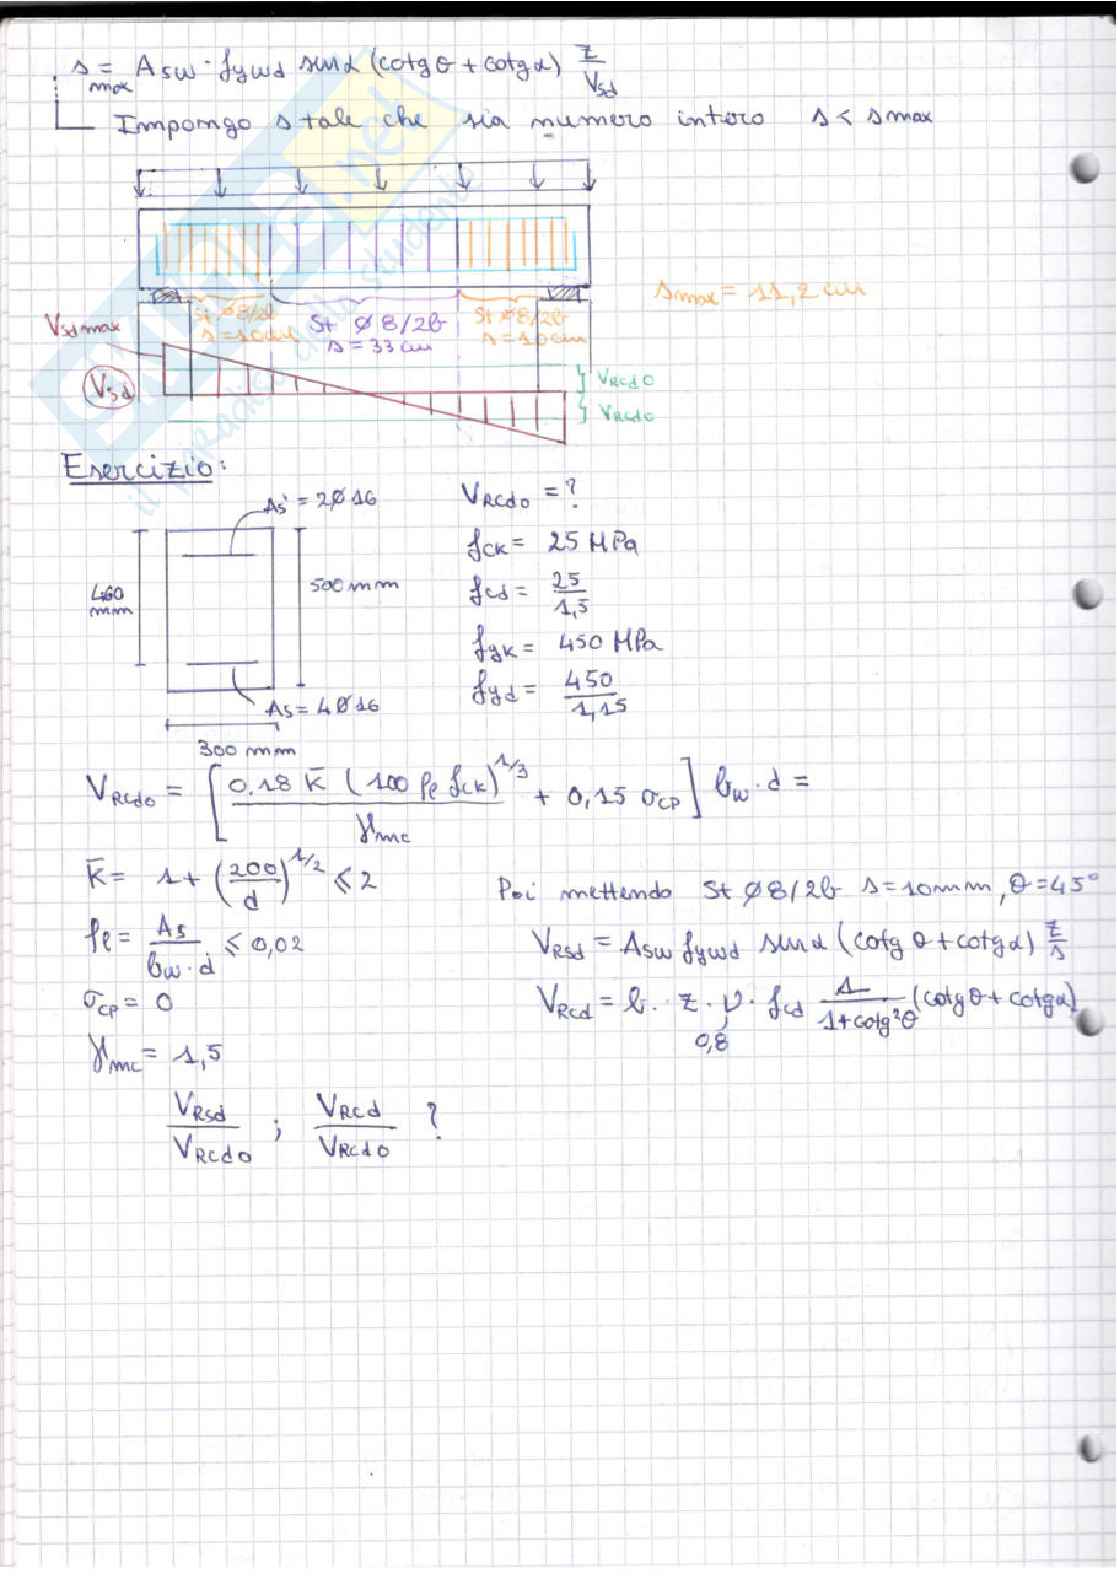 s max = Asw · fywd sinα (cotgθ + cotgα) z/Vsd
Impongo s tale che sia numero intero s < smax
smax = 11,2 cm
St ø8/2b s = 10 cm
St ø8/2b s = 33 cm
St ø8/2b s = 10 cm
Vsd max
Vsd
VRcd0
VRcd0
Esercizio:
As' = 2ø16
460 mm
500 mm
As = 4ø16
300 mm
VRcd0 = ?
fck = 25 MPa
fcd = 25/1,5
fyk = 450 MPa
fyd = 450/1,15
VRcd0 = [0.18 k̄ (100 ρe fck)^1/3 / γmc + 0,15 σcp] bw · d =
k̄ = 1 + (200/d)^1/2 ≤ 2
ρe = As/(bw · d) ≤ 0,02
σcp = 0
γmc = 1,5
Poi mettendo St ø8/2b s = 10mm, θ = 45°
VRsd = Asw fywd sinα (cotg θ + cotgα) z/s
VRcd = b · z · ν · fcd 1/(1 + cotg²θ) (cotgθ + cotgα)
0,8
VRsd/VRcd0 ; VRcd/VRcd0 ?
SKUOLA.net
il paradiso dello studente